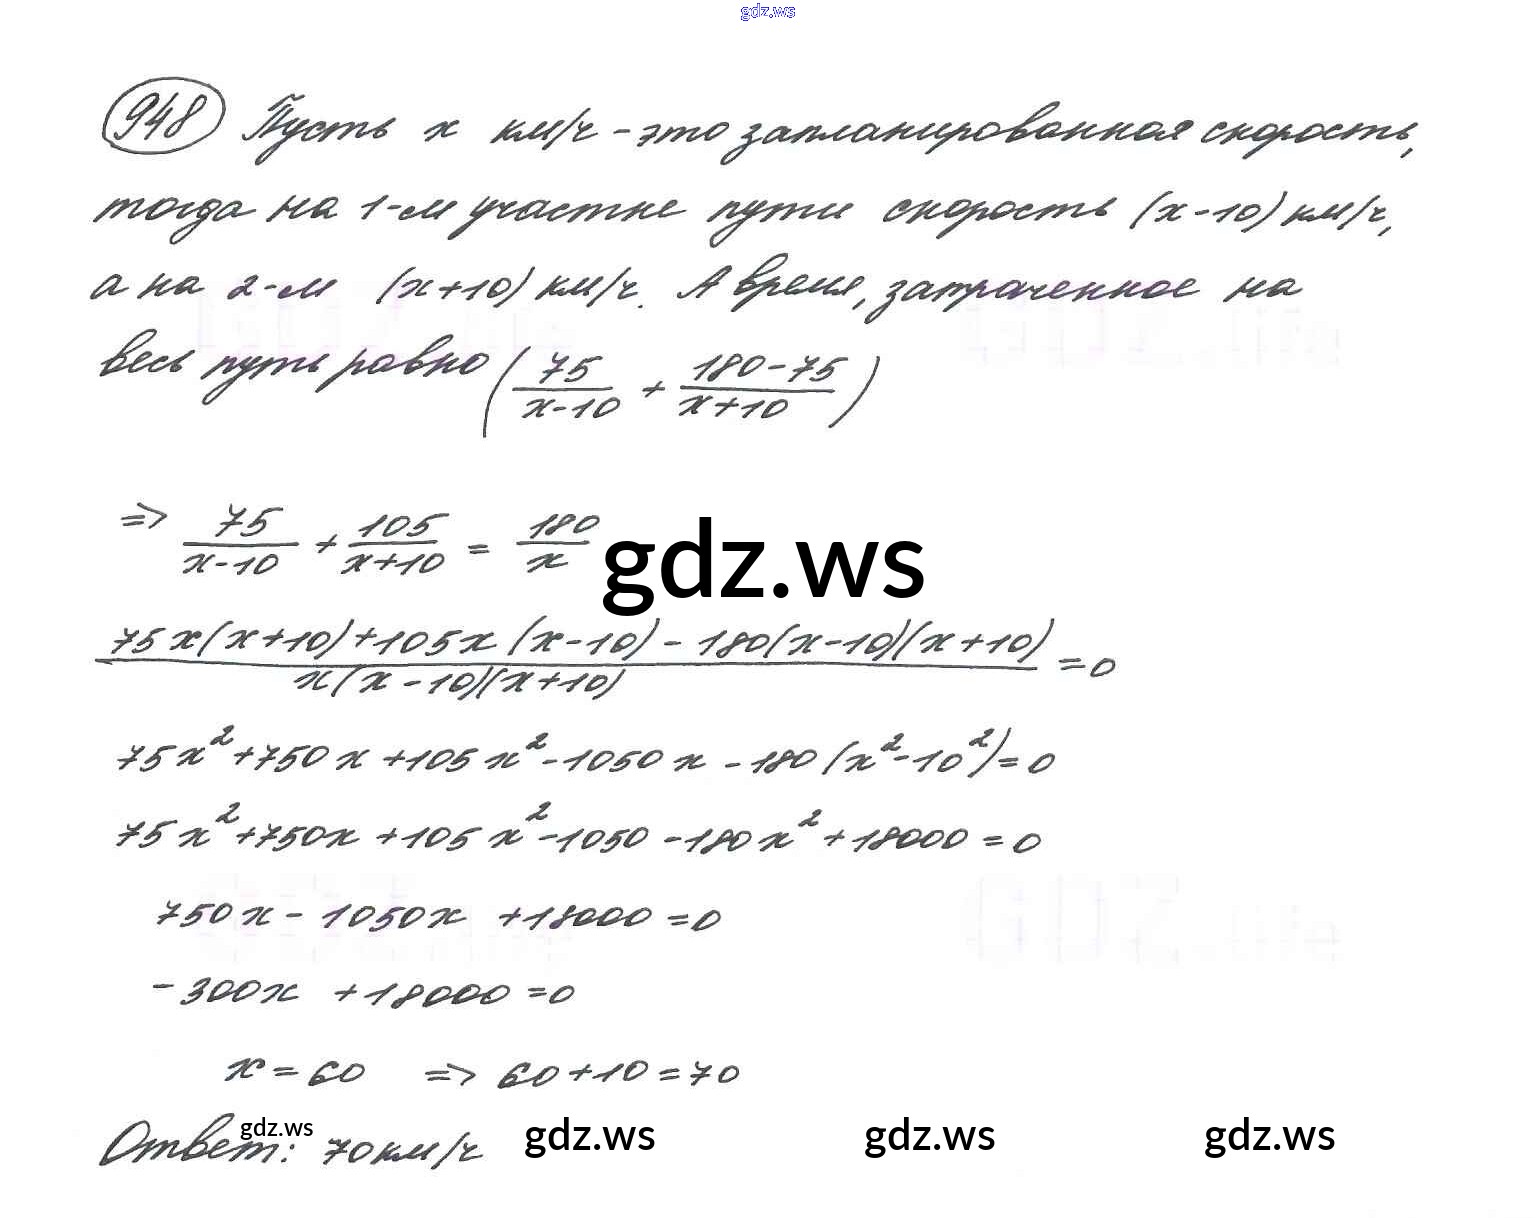 gdz.ws
948 Пусть x км/ч - это запланированная скорость,
тогда на 1-м участке пути скорость (x-10) км/ч,
а на 2-м (x+10) км/ч. А время, затраченное на
весь путь равно (75/(x-10) + (180-75)/(x+10))
=> 75/(x-10) + 105/(x+10) = 180/x
gdz.ws
(75x(x+10)+105x(x-10)-180(x-10)(x+10))/(x(x-10)(x+10)) =0
75x²+750x+105x²-1050x-180(x²-10²)=0
75x²+750x+105x²-1050-180x²+18000=0
750x-1050x+18000=0
-300x+18000=0
x=60 => 60+10=70
Ответ: 70км/ч
gdz.ws gdz.ws gdz.ws gdz.ws
GDZ.life GDZ.life
GDZ.life GDZ.life